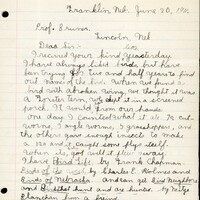 Franklin Neb. June 20, 19
Prof. Bruner.
Lincoln Neb
Dear Sir:-
I received your bird yesterday.
I have always liked birds but have
been trying for two and half years to find
out names of the birds. When we found a
bird with a broken wing, we thought it was
a Forster tern, we kept it in a screened
porch. It would roam our hands
one day I counted what it ate. 15 cut-
worms, angle worms, grasshoppers, and
the others gave enough insect to make
a 100 and it caught some flys itself.
When it got well it flew away.
I have Bird Life, by Frank Chapman
Birds of the west by Charles E. Holmes and
Birds of Nebraska and can get Bird Neighbors
and Birds that hunt and are hunted. by Neltje
Blanchan from a friend